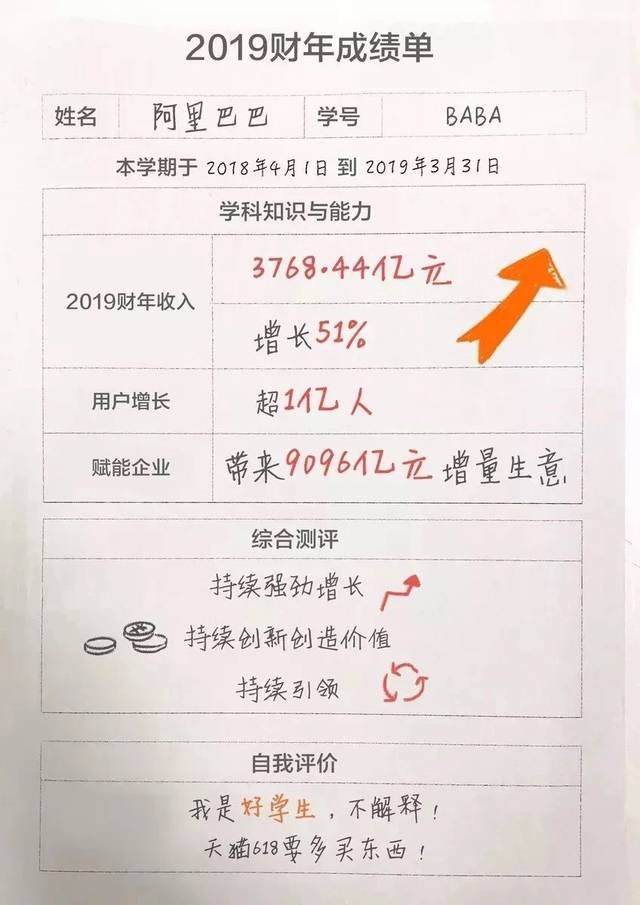 2019财年成绩单
姓名 阿里巴巴 学号 BABA
本学期于 2018年4月1日 到 2019年3月31日
学科知识与能力
2019财年收入
3768.44亿元
增长51%
用户增长 超1亿人
赋能企业 带来9096亿元增量生意
综合测评
持续强劲增长
持续创新创造价值
持续引领
自我评价
我是好学生，不解释！
天猫618要多买东西！